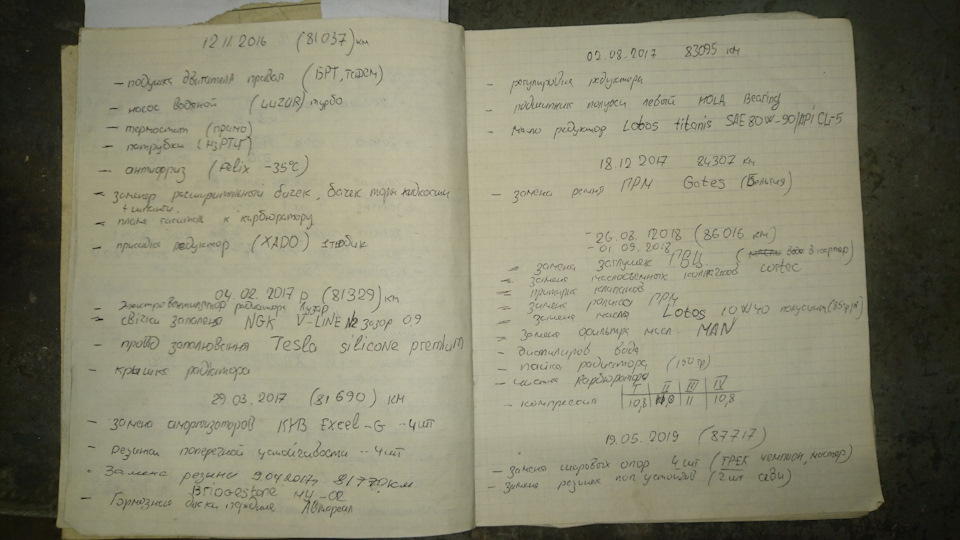 12.11.2016 (81037) км
- подушка двигателя правая (БРТ,
- насос водяной (LUZAR) турбо
- термостат (прамо)
- патрубки
- антифриз (Felix -35°C)
- замена расширительный бачек, бачек торм жидкости
+ шланги.
к карбюратору
- присадка редуктор (XADO) 1 тюбик
04.02.2017 р (81329) км
- электровентилятор радиатора Лузар
- свічки запалення NGK V-LINE № зазор 0.9
- провід запалювання Tesla silicone premium
- крышка радіатора
29.03.2017 (81690) км
- замена амортизаторов KYB Excel-G - 4шт
- резинки поперечной устойчивости - 4шт
- Замена резины 9.04.2017 81770км
Bridgestone
- Тормозные диски передние
02.08.2017 83095 км
- регулировка редуктора
- подшипник полуоси левый HOLA Bearing
- масло редуктор Lotos titanis SAE 80W-90/API GL-5
18.12.2017 84307 км
- замена ремня ГРМ Gates (Бельгия)
- 26.08.2018 (86016 км)
- 01.09.2018
- замена заглушек ГБЦ вода в картер)
- замена маслосъемных колпачков corteco
- притирка клапанов
- замена ролика ГРМ
- замена масла Lotos 10W40 полусинт
- замена фильтра масл. MAN
- дистилиров вода
- пайка радиатора (150гр)
- чистка карбюратора
I II III IV
- компрессия 10,8 11 10,8
19.05.2019 (87717)
- замена шаровых опор 4 шт (ТРЕК чемпион, мастер)
- замена резинок поп устойчив (2 шт